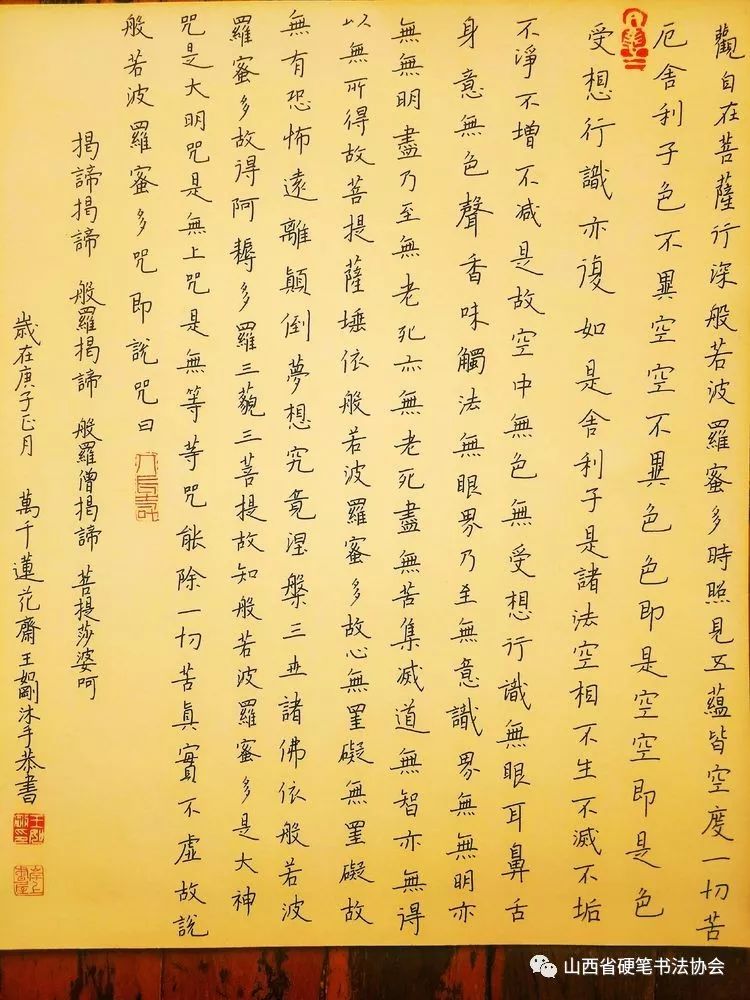 觀自在菩薩行深般若波羅蜜多時照見五蘊皆空度一切苦
厄舍利子色不異空空不異色色即是空空即是色
受想行識亦復如是舍利子是諸法空相不生不滅不垢
不淨不增不減是故空中無色無受想行識無眼耳鼻舌
身意無色聲香味觸法無眼界乃至無意識界無無明亦
無無明盡乃至無老死亦無老死盡無苦集滅道無智亦無得
以無所得故菩提薩埵依般若波羅蜜多故心無罣礙無罣礙故
無有恐怖遠離顛倒夢想究竟涅槃三世諸佛依般若波
羅蜜多故得阿耨多羅三藐三菩提故知般若波羅蜜多是大神
咒是大明咒是無上咒是無等等咒能除一切苦真實不虛故說
般若波羅蜜多咒即說咒曰
揭諦揭諦 般羅揭諦 般羅僧揭諦 菩提莎婆呵
歲在庚子正月 萬千蓮花齋王 沐手恭書
山西省硬笔书法协会